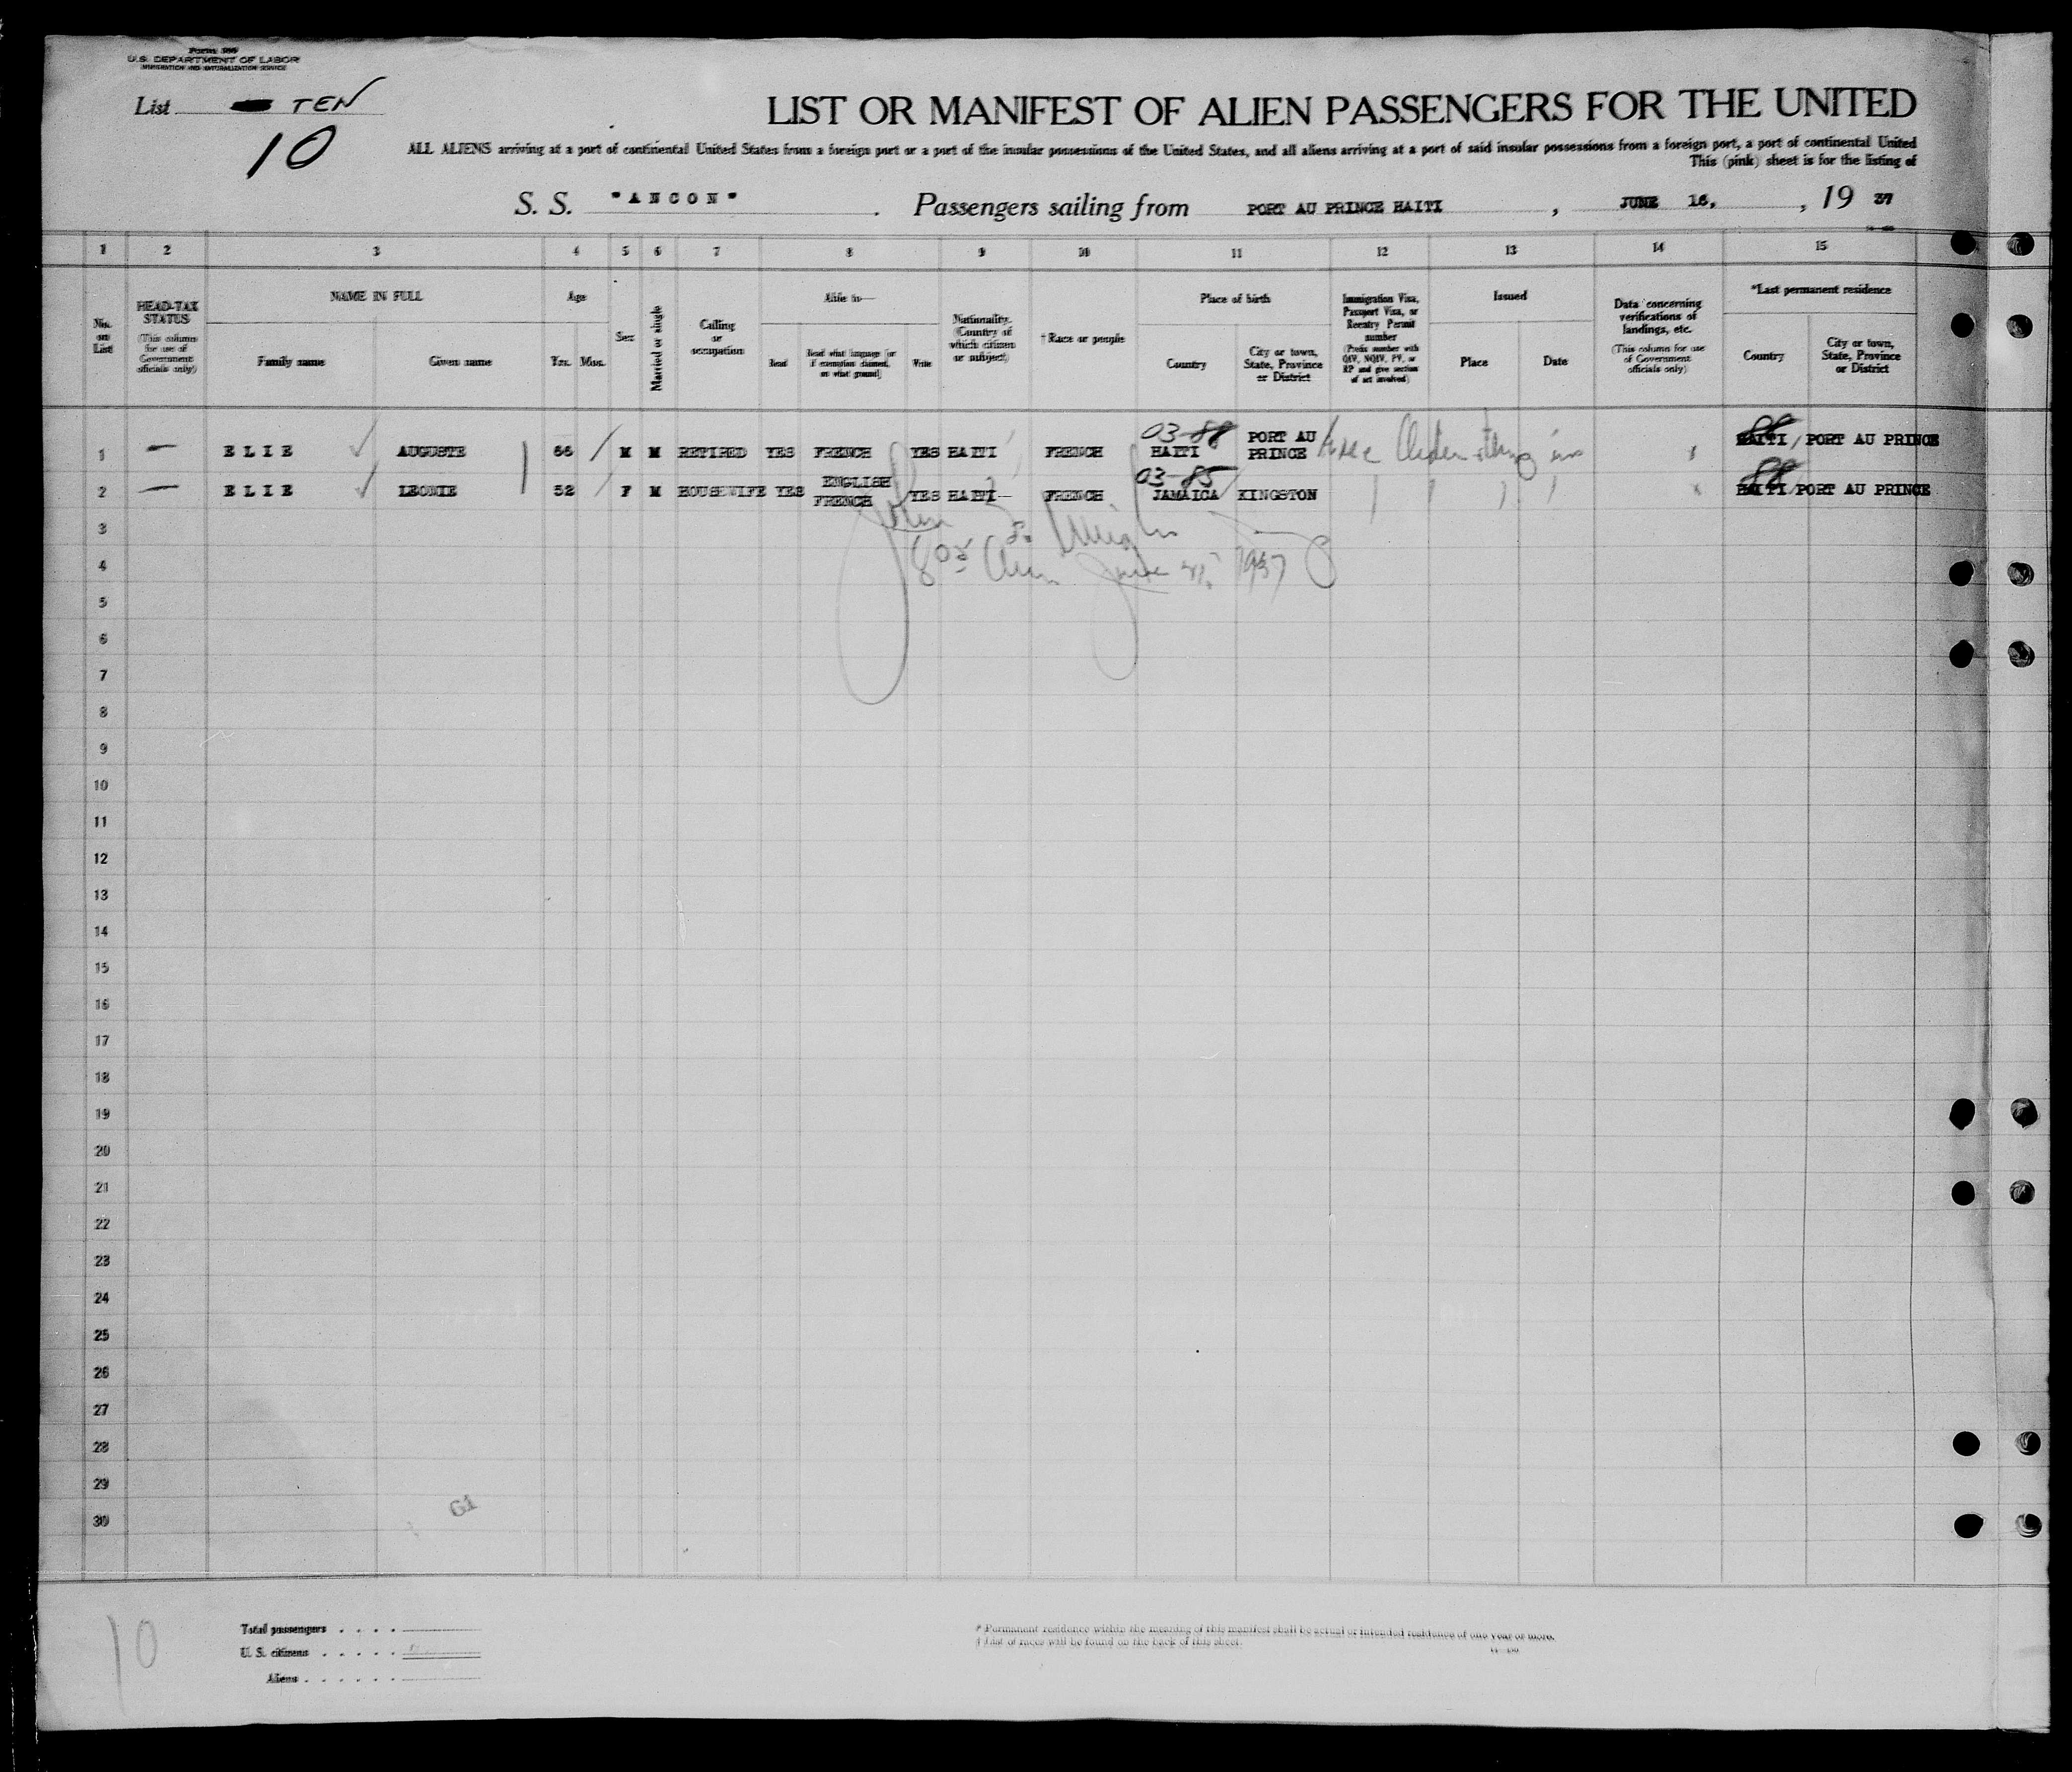 Form 500
U.S. DEPARTMENT OF LABOR
IMMIGRATION AND NATURALIZATION SERVICE
List TEN
10
LIST OR MANIFEST OF ALIEN PASSENGERS FOR THE UNITED
ALL ALIENS arriving at a port of continental United States from a foreign port or a port of the insular possessions of the United States, and all aliens arriving at a port of said insular possessions from a foreign port, a port of continental United
This (pink) sheet is for the listing of
S. S. "ANCON". Passengers sailing from PORT AU PRINCE HAITI, JUNE 16, , 19 37
1 2 3 4 5 6 7 8 9 10 11 12 13 14 15
No. on List
HEAD-TAX STATUS (This column for use of Government officials only)
NAME IN FULL
Family name Given name
Age
Yrs. Mos.
Sex
Married or single
Calling or occupation
Able to—
Read Read what language [or if exemption claimed, on what ground] Write
Nationality. (Country of which citizen or subject)
† Race or people
Place of birth
Country City or town, State, Province or District
Immigration Visa, Passport Visa, or Reentry Permit number (Prefix number with QIV, NQIV, PV, or RP and give section of act involved)
Issued
Place Date
Data concerning verifications of landings, etc. (This column for use of Government officials only)
*Last permanent residence
Country City or town, State, Province or District
03-88 88
1 — ELIE AUGUSTE 66 M M RETIRED YES FRENCH YES HAITI FRENCH HAITI PORT AU PRINCE HAITI PORT AU PRINCE
03-85 88
2 — ELIE LEONIE 52 F M HOUSEWIFE YES ENGLISH FRENCH YES HAITI FRENCH JAMAICA KINGSTON HAITI PORT AU PRINCE
3
4
June 1937
5
6
7
8
9
10
11
12
13
14
15
16
17
18
19
20
21
22
23
24
25
26
27
28
29
30
G1
10
Total passengers . . . .
U. S. citizens . . . . .
Aliens . . . . . .
* Permanent residence within the meaning of this manifest shall be actual or intended residence of one year or more.
† List of races will be found on the back of this sheet.